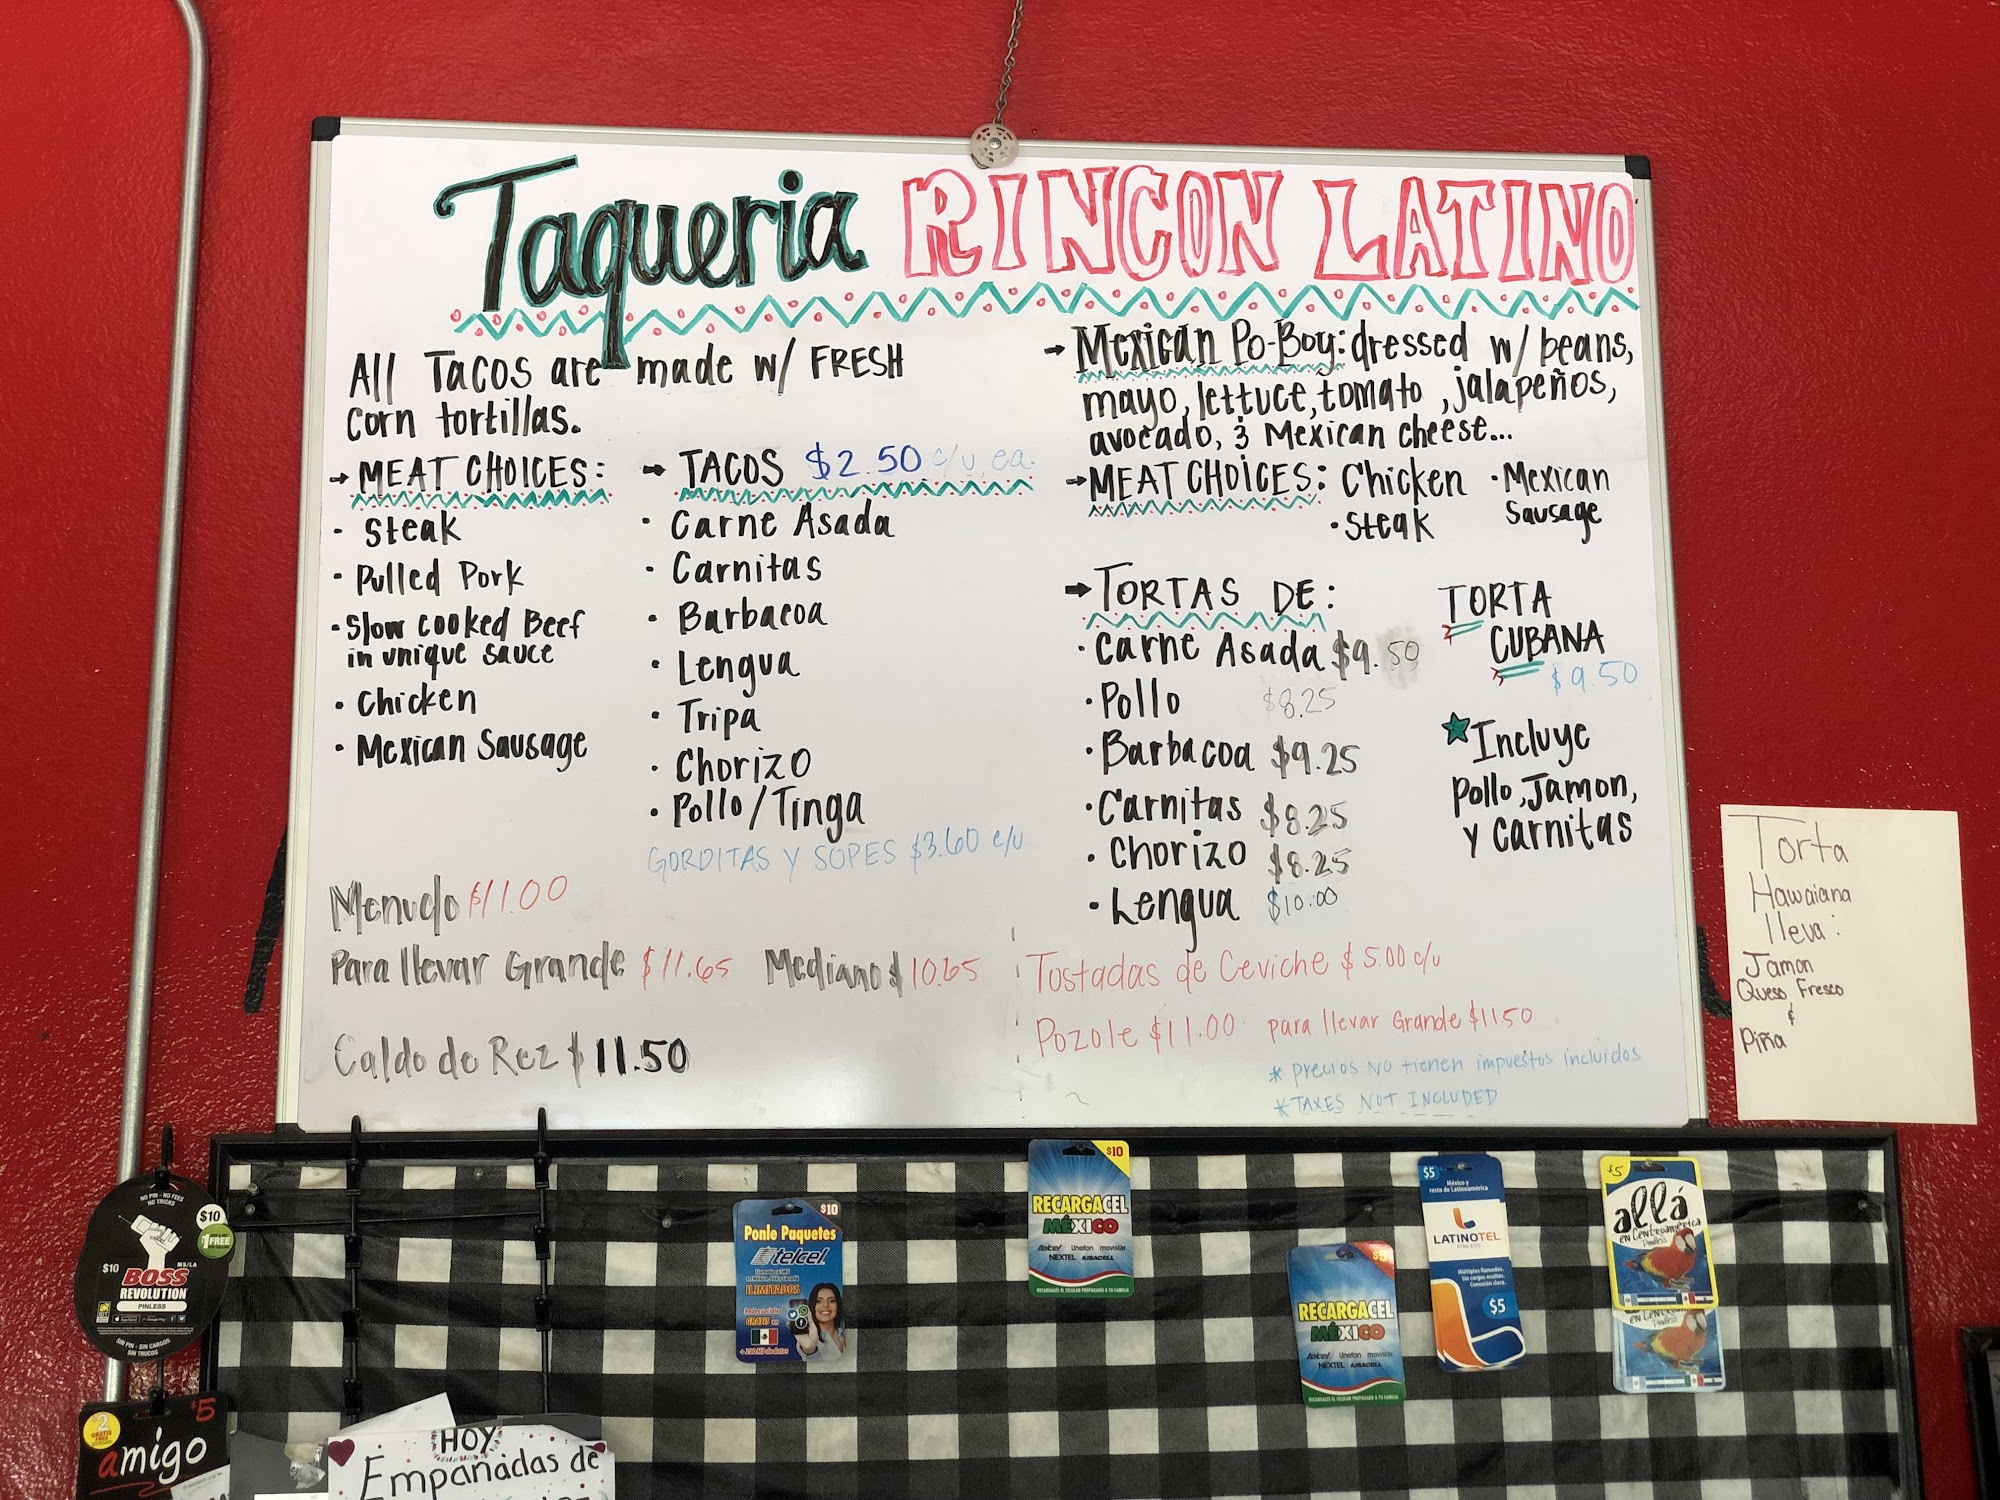 Taqueria RINCON LATINO
All Tacos are made w/ FRESH
corn tortillas.
→ MEAT CHOICES:
· Steak
· Pulled Pork
· Slow cooked Beef
in unique sauce
· Chicken
· Mexican Sausage
→ TACOS $2.50 c/u ea.
· Carne Asada
· Carnitas
· Barbacoa
· Lengua
· Tripa
· Chorizo
· Pollo/Tinga
GORDITAS Y SOPES $3.60 c/u
Menudo $11.00
Para llevar Grande $11.65 Mediano $10.65
Caldo de Rez $11.50
→ Mexican Po-Boy: dressed w/ beans,
mayo, lettuce, tomato, jalapeños,
avocado, & Mexican cheese...
→ MEAT CHOICES: Chicken · Mexican
Sausage
· Steak
→ TORTAS DE:
· Carne Asada $9.50
· Pollo $8.25
· Barbacoa $9.25
· Carnitas $8.25
· Chorizo $8.25
· Lengua $10.00
TORTA
CUBANA
$9.50
★Incluye
Pollo, Jamon,
y Carnitas
Tostadas de Ceviche $5.00 c/u
Pozole $11.00 para llevar Grande $1150
* Precios NO tienen impuestos incluidos
* TAXES NOT INCLUDED
Torta
Hawaiana
lleva:
Jamon
Queso, Fresco
&
Piña
NO PIN - NO FEES
NO TRICKS
$10
$1 FREE
$10
MS/LA
BOSS
REVOLUTION
PINLESS
SIN PIN - SIN CARGOS
SIN TRUCOS
$2
GRATIS
$5
amigo
HOY
Empanadas de
$10
Ponle Paquetes
telcel
ILIMITADOS
Redes sociales
GRATIS
$10
RECARGACEL
MÉXICO
telcel Unefon movistar
NEXTEL IUSACELL
RECARGUES EL CELULAR PREPAGADO A TU FAMILIA
$5
RECARGACEL
MÉXICO
telcel Unefon movistar
NEXTEL IUSACELL
RECARGUES EL CELULAR PREPAGADO A TU FAMILIA
$5
México y
resto de Latinoamérica
LATINOTEL
PINLESS
Múltiples llamadas.
Sin cargos ocultos.
Conexión clara.
$5
$5
allá
en Centroamérica
Pinless
en Centro
Pinless